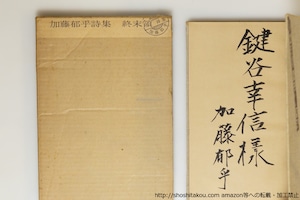 加藤郁乎詩集 終末領
鍵谷幸信様
加藤郁乎
http://shoshitakou.com amazon等への転載・加工禁止